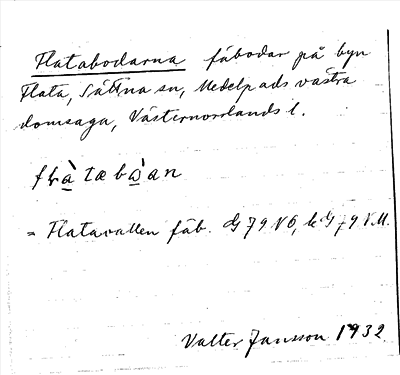 Flatabodarna fäbodar på byn
Flata, Sättna sn, Medelpads västra
domsaga, Västernorrlands l.
= Flatavallen fäb. G 79 V6,
Valter Jansson 1932